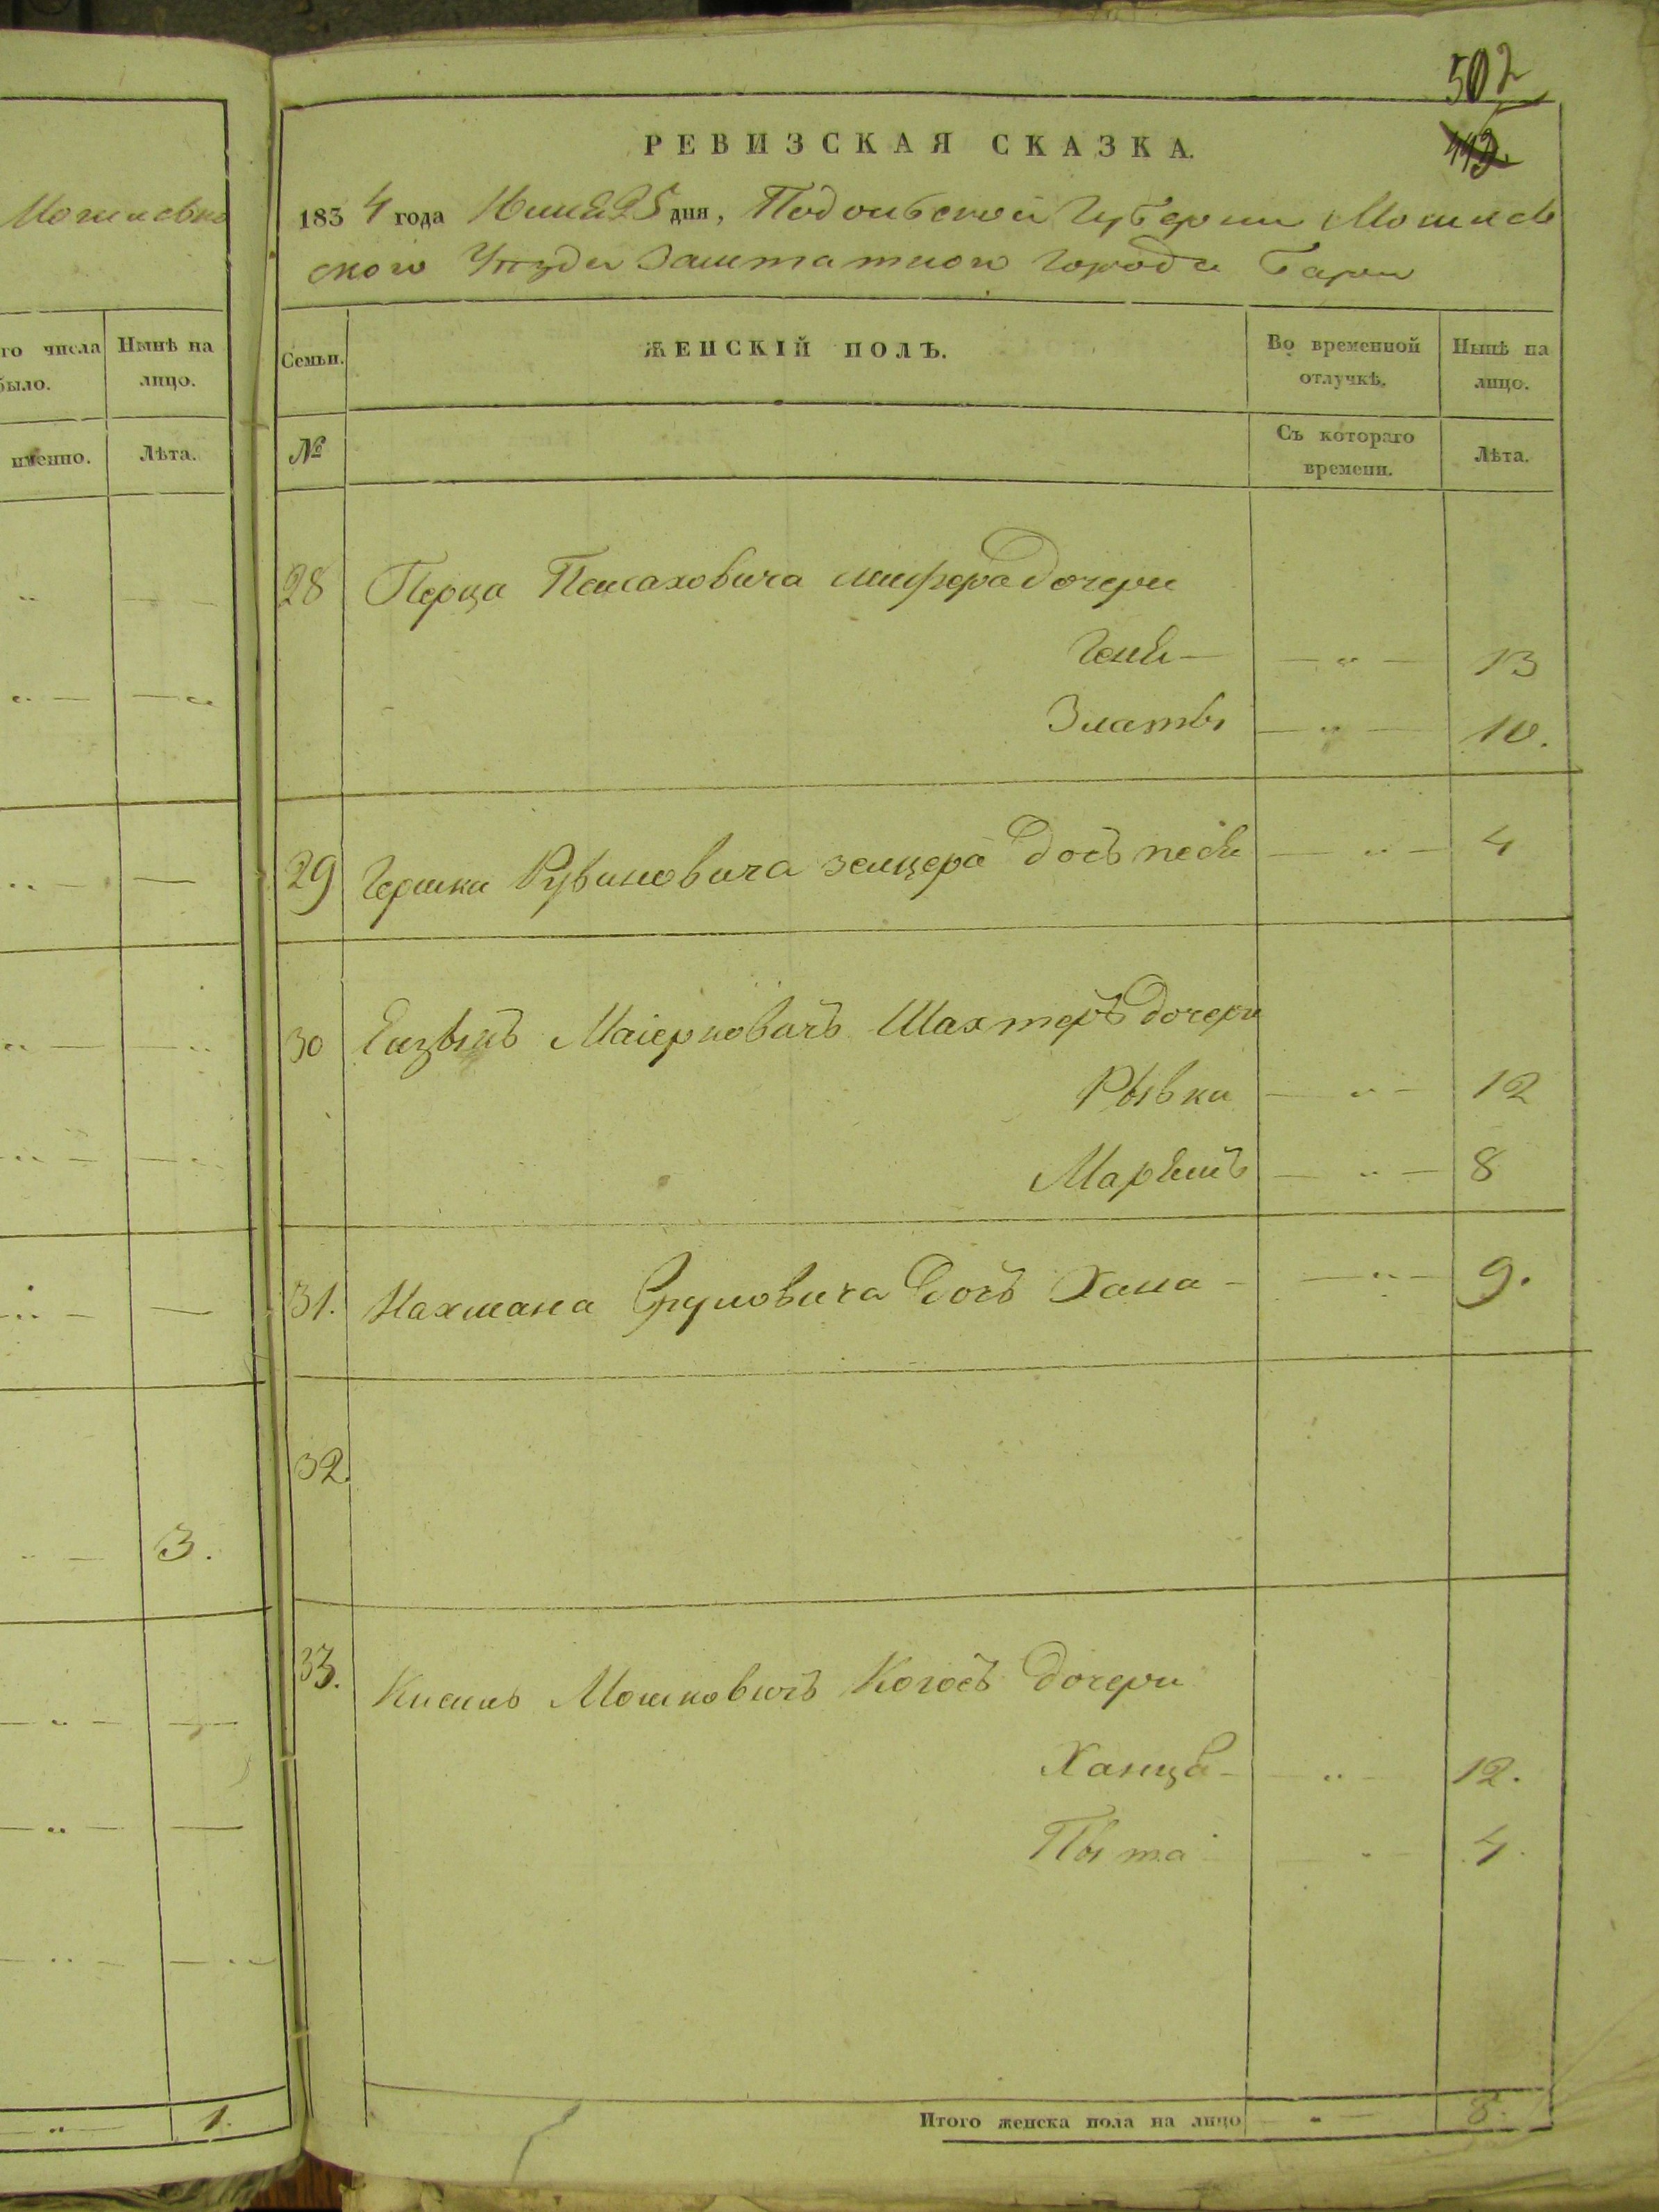 Могилевско
го числа
было.
Нынѣ на
лицо.
именно.
Лѣта.
3.
1.
502
РЕВИЗСКАЯ СКАЗКА.
1834 года Июня 25 дня, Подольской Губернии Могилев
ского Уѣзда Заштатного города Бара
Семьи.
ЖЕНСКІЙ ПОЛЪ.
Во временной
отлучкѣ.
Нынѣ на
лицо.
№
Съ котораго
времени.
Лѣта.
28 Перца Пейсаховича дочери
Геня 13
Златы 10.
29 Гершка Рувиновича зелцера дочь песя 4
30 Маіерковичъ Шахтеръ дочери
Рывка 12
Марьямъ 8
31. Нахмана Сруловича дочь Хана 9.
32.
33. Кисиль Мошковичъ Когосъ дочери
Ханця 12.
Пыта 4.
Итого женска пола на лицо 8.